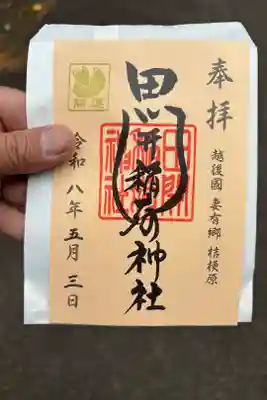 奉拝
越後國 妻有郷 桔梗原
田開稲荷神社
開運
令和八年五月三日